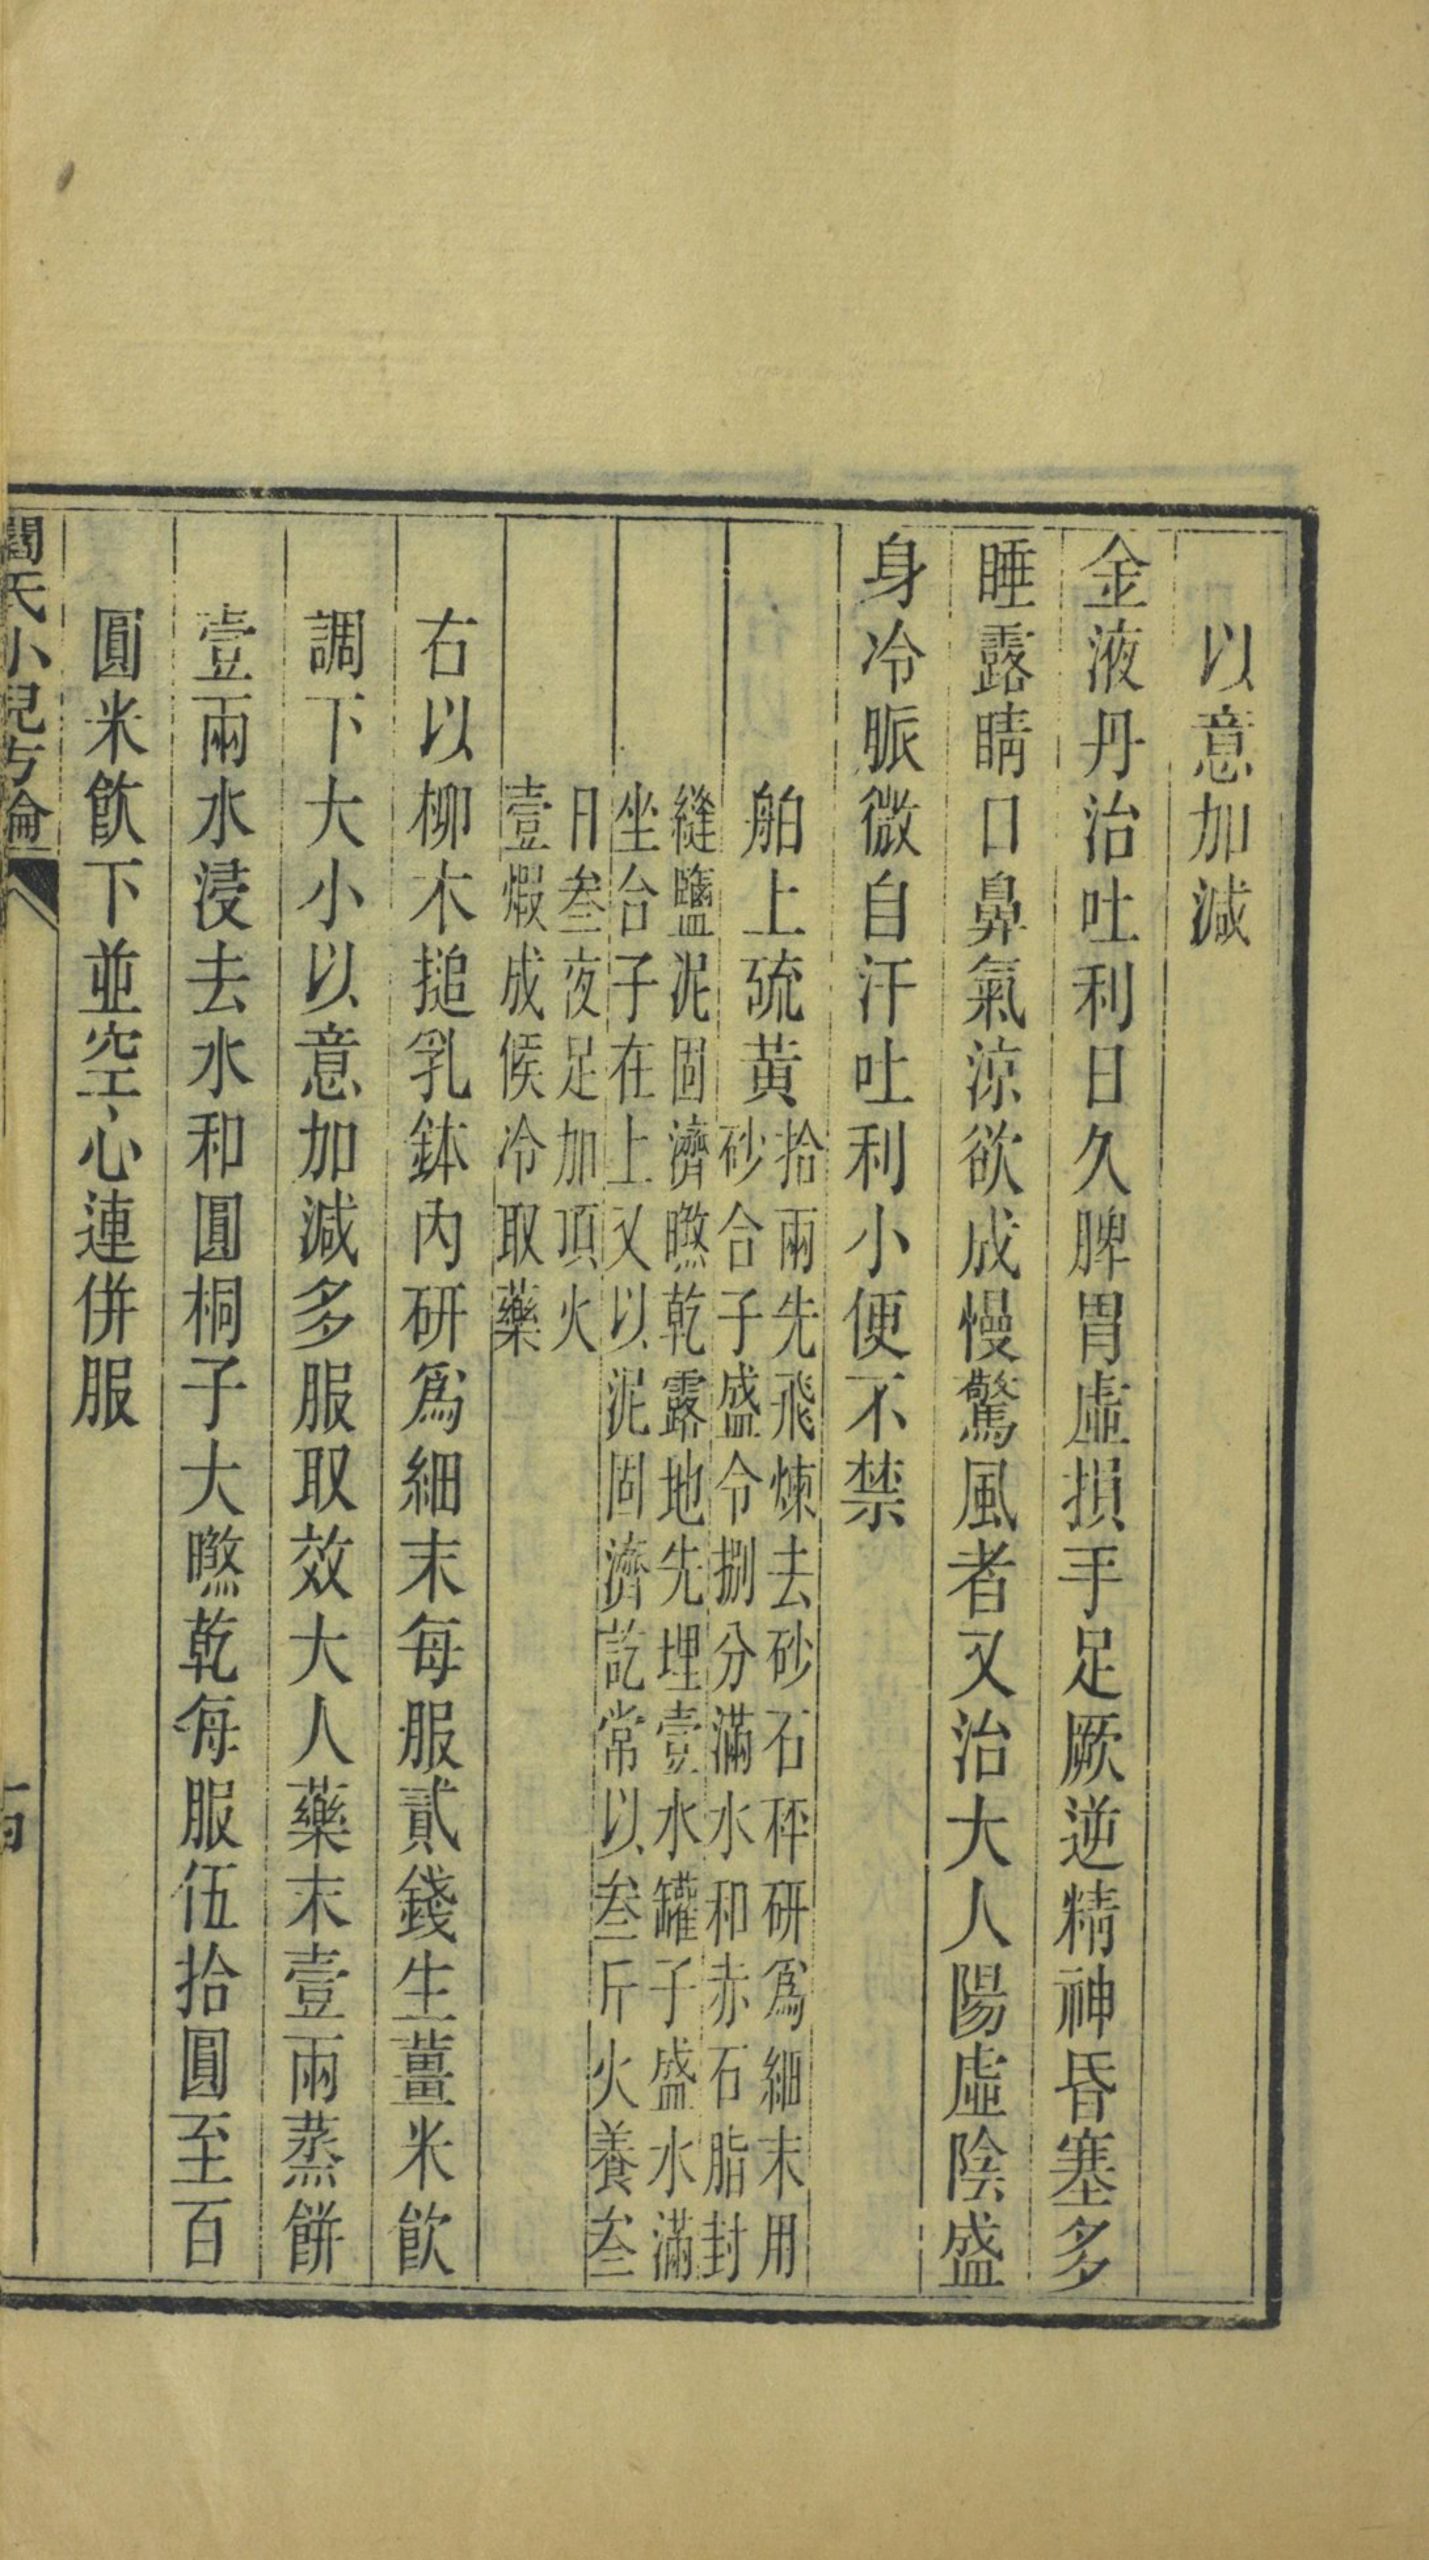 以意加減
金液丹治吐利日久脾胃虛損手足厥逆精神昏塞多
睡露睛口鼻氣涼欲成慢驚風者又治大人陽虛陰盛
身冷脈微自汗吐利小便不禁
舶上硫黃拾兩先飛煉去砂石秤研爲細末用
砂合子盛令捌分滿水和赤石脂封
縫鹽泥固濟㬠乾露地先埋壹水罐子盛水滿
坐台子在上又以泥固濟訖常以叁斤火養叁
日叁夜足加頂火
壹煆成候冷取藥
右以柳木搥乳鉢內研爲細末每服貳錢生薑米飮
調下大小以意加減多服取效大人藥末壹兩蒸餅
壹兩水浸去水和圓桐子大㬠乾每服伍拾圓至百
圓米飮下並空心連併服
閻氏小兒方論